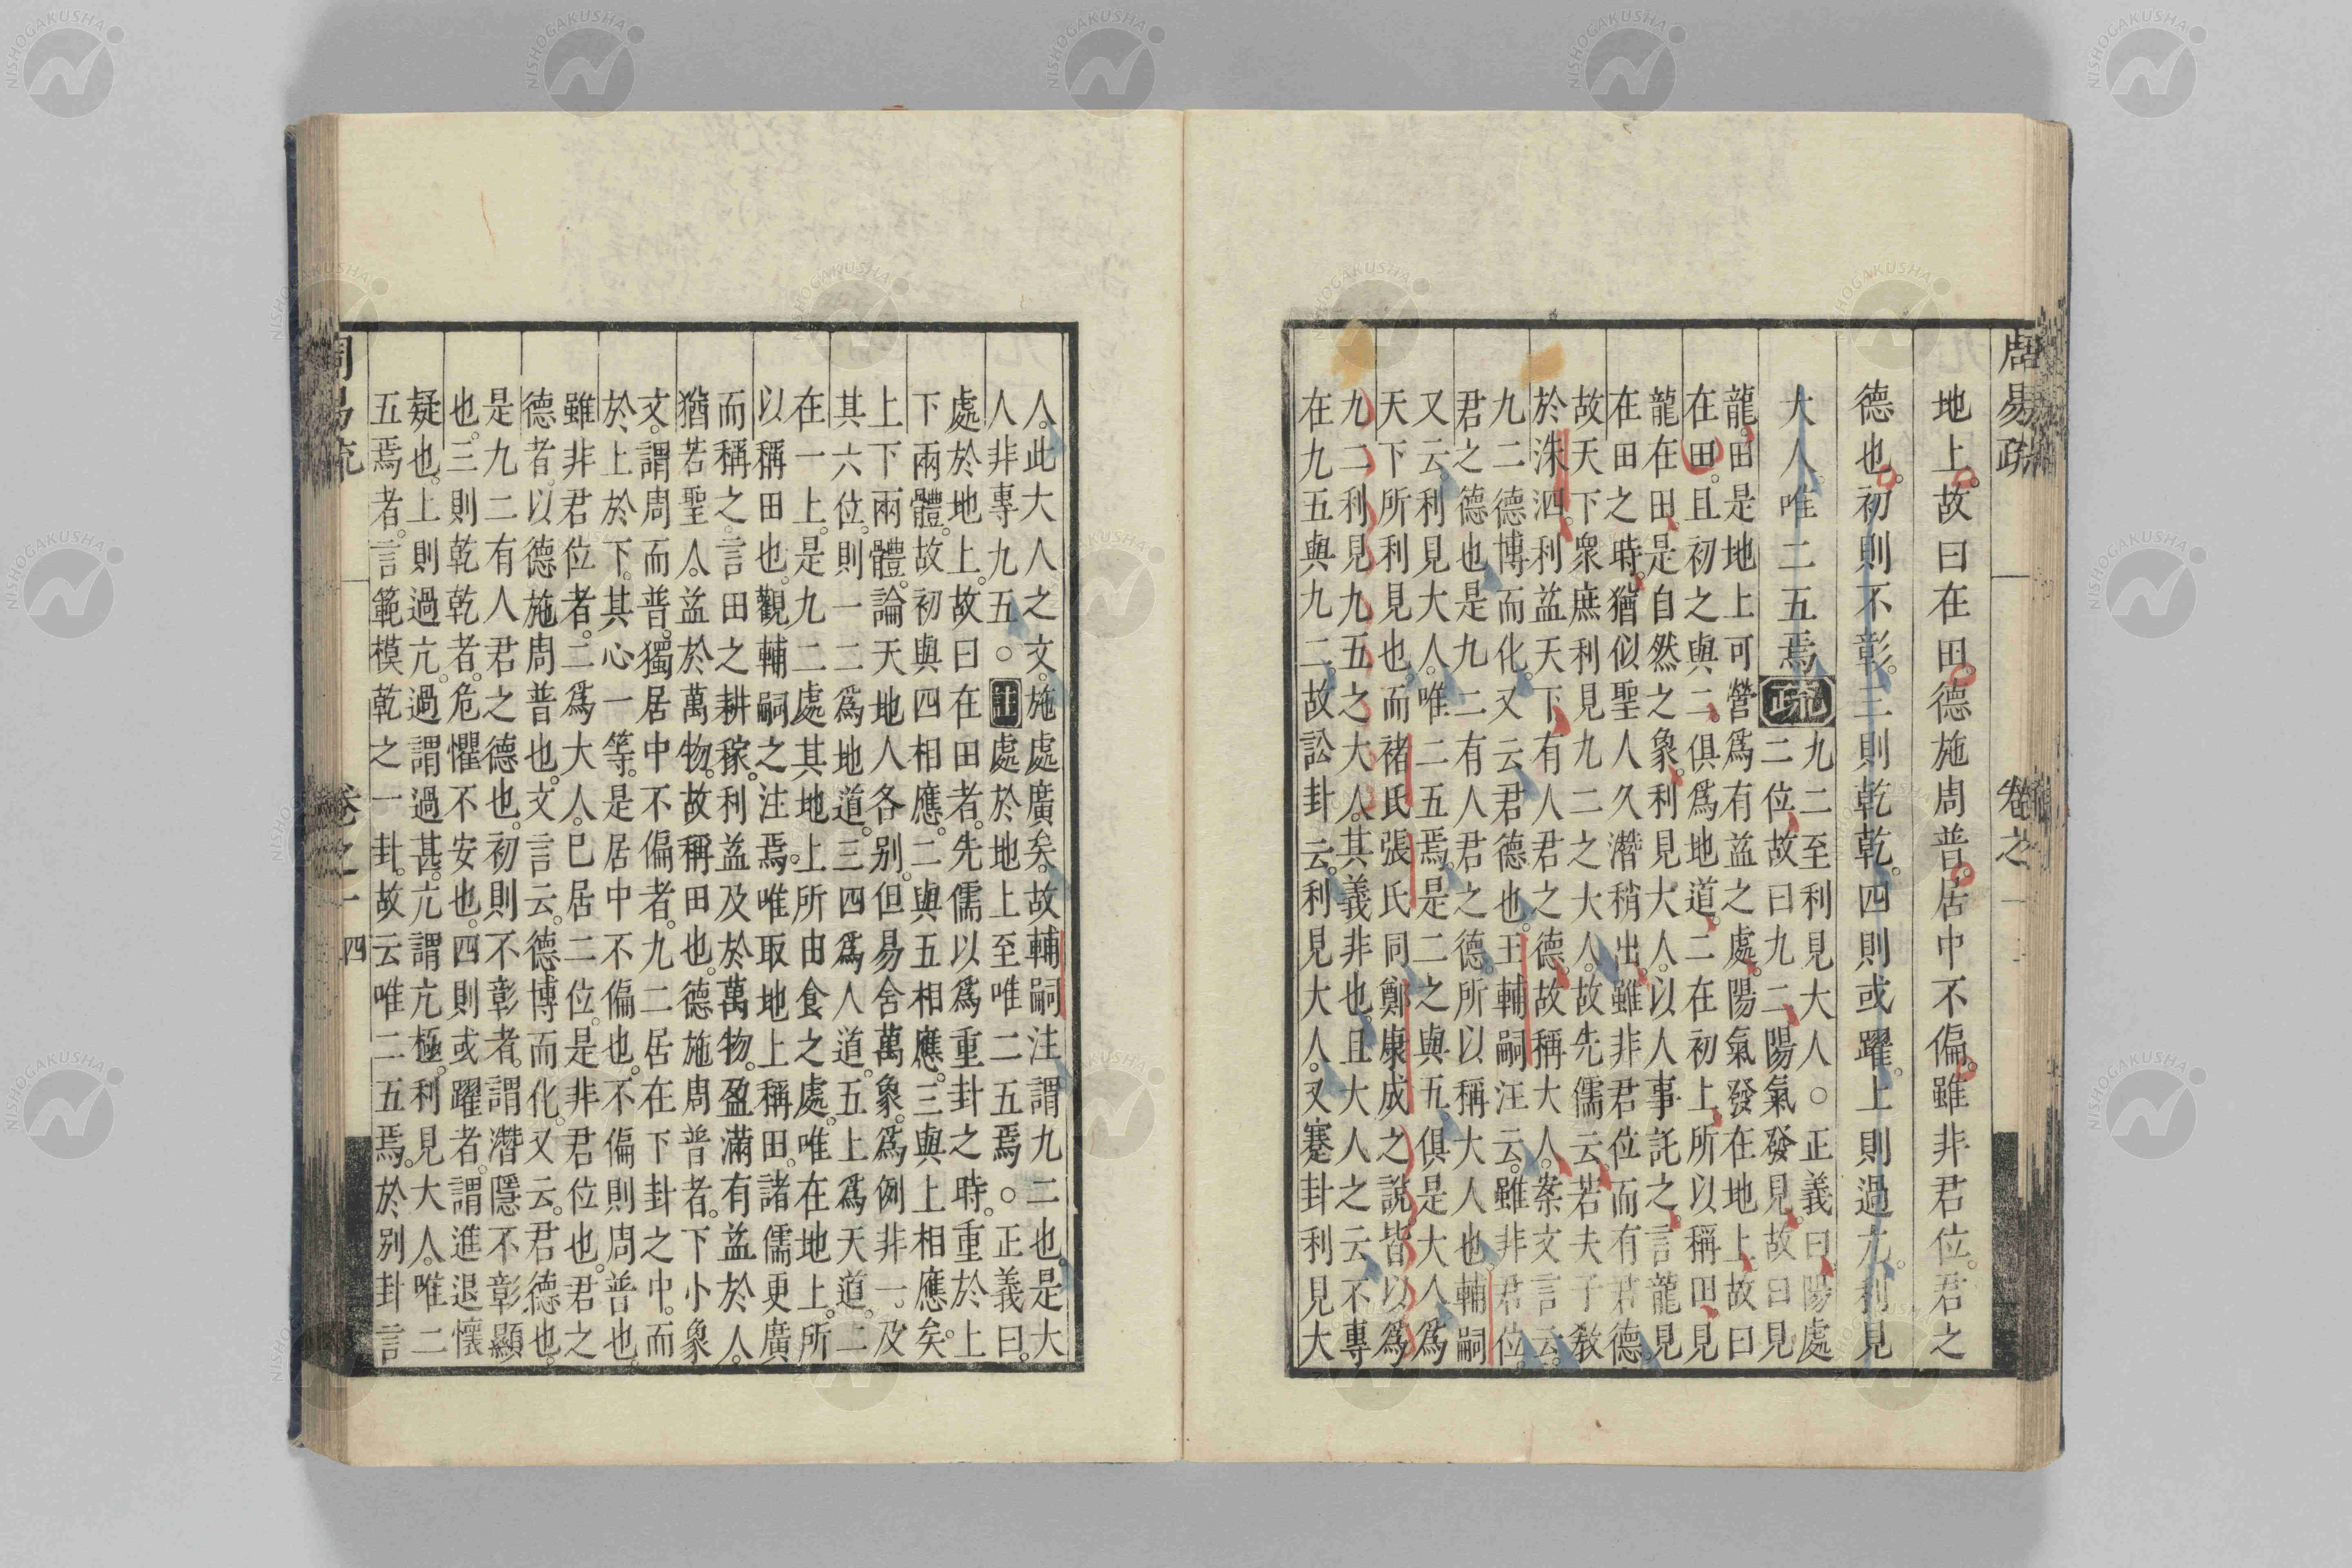 周易疏　卷之一
地上。故曰在田。德施周普。居中不偏。雖非君位。君之
德也。初則不彰。三則乾乾。四則或躍。上則過亢。利見
大人。唯二五焉。疏
九二至利見大人。○正義曰。陽處
二位。故曰九二。陽氣發見。故曰見
龍。田是地上可營爲有益之處。陽氣發在地上。故曰
在田。且初之與二。俱爲地道。二在初上。所以稱田。見
龍在田。是自然之象。利見大人。以人事託之。言龍見
在田之時。猶似聖人久潛稍出。雖非君位而有君德。
故天下衆庶利見九二之大人。故先儒云。若夫子教
於洙泗。利益天下。有人君之德。故稱大人。案文言云。
九二德博而化。又云君德也。王輔嗣注云。雖非君位。
君之德也。是九二有人君之德。所以稱大人也。輔嗣
又云。利見大人。唯二五焉。是二之與五。俱是大人。爲
天下所利見也。而褚氏張氏同鄭康成之說。皆以爲
九二利見九五之大人。其義非也。且大人之云。不專
在九五與九二。故訟卦云。利見大人。又蹇卦利見大
人。此大人之文。施處廣矣。故輔嗣注謂九二也。是大
人非專九五。○註處於地上至唯二五焉。○正義曰。
處於地上。故曰在田者。先儒以爲重卦之時。重於上
下兩體。故初與四相應。二與五相應。三與上相應矣。
上下兩體。論天地人各別。但易舍萬象。爲例非一。及
其六位。則一二爲地道。三四爲人道。五上爲天道。二
在一上。是九二處其地上所由食之處。唯在地上。所
以稱田也。觀輔嗣之注焉。唯取地上稱田。諸儒更廣
而稱之。言田之耕稼。利益及於萬物。盈滿有益於人。
猶若聖人。益於萬物。故稱田也。德施周普者。下小象
文。謂周而普。獨居中不偏者。九二居在下卦之中。而
於上於下。其心一等。是居中不偏也。不偏則周普也。
雖非君位者。二爲大人。已居二位。是非君位也。君之
德者。以德施周普也。文言云。德博而化。又云。君德也。
是九二有人君之德也。初則不彰者。謂潛隱不彰顯
也。三則乾乾者。危懼不安也。四則或躍者。謂進退懷
疑也。上則過亢。過謂過甚。亢謂亢極。利見大人。唯二
五焉者。言範模乾之一卦。故云唯二五焉。於別卦言
周易疏　卷之一　四